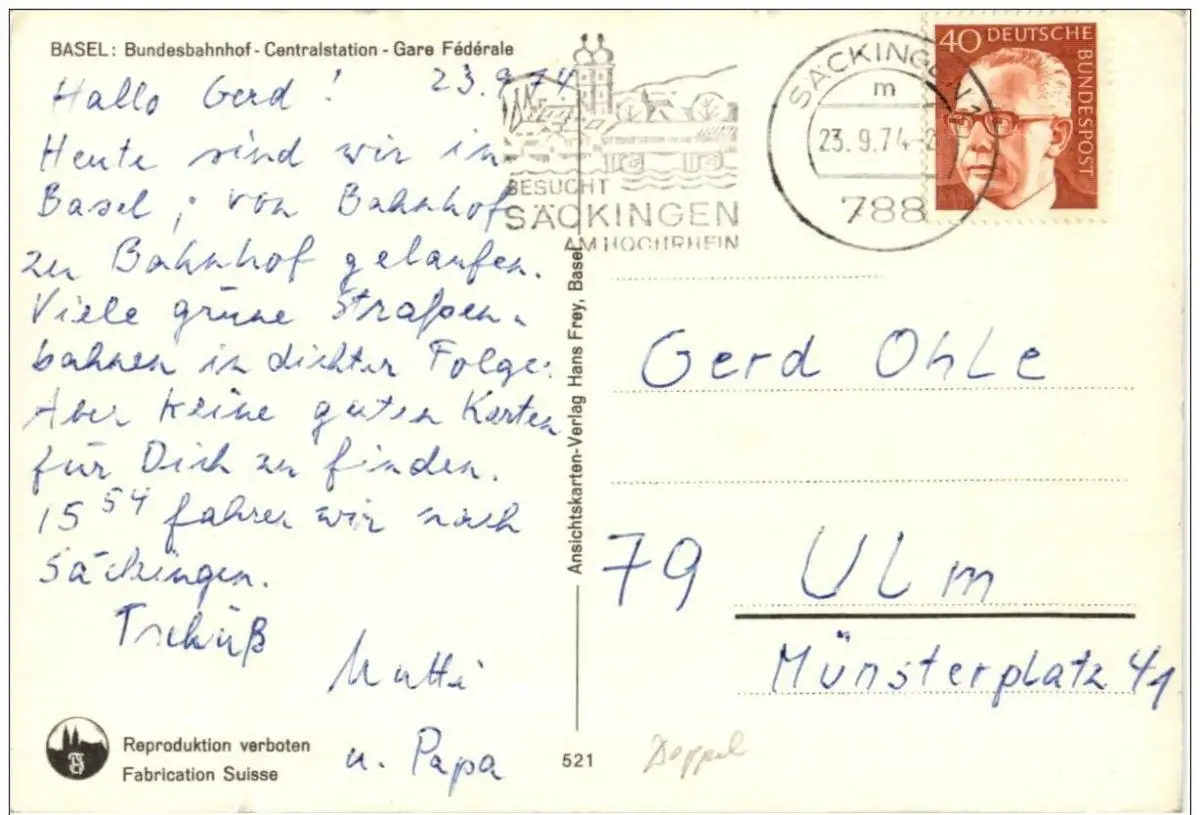 BASEL: Bundesbahnhof - Centralstation - Gare Fédérale
Hallo Gerd! 23.9.74
Heute sind wir in
Basel, von Bahnhof
zu Bahnhof gelaufen.
Viele grüne Straßen-
bahnen in dichter Folge.
Aber keine guten Karten
für Dich zu finden.
15 54 fahren wir nach
Säckingen.
Tschüß
Mutti
u. Papa
Reproduktion verboten
Fabrication Suisse
521
Ansichtskarten-Verlag Hans Frey, Basel
BESUCHT
SÄCKINGEN
AM HOCHRHEIN
SÄCKINGEN 1
m
23.9.74-2
788
40 DEUTSCHE
BUNDESPOST
Gerd Ohle
79 Ulm
Münsterplatz 41
Doppel